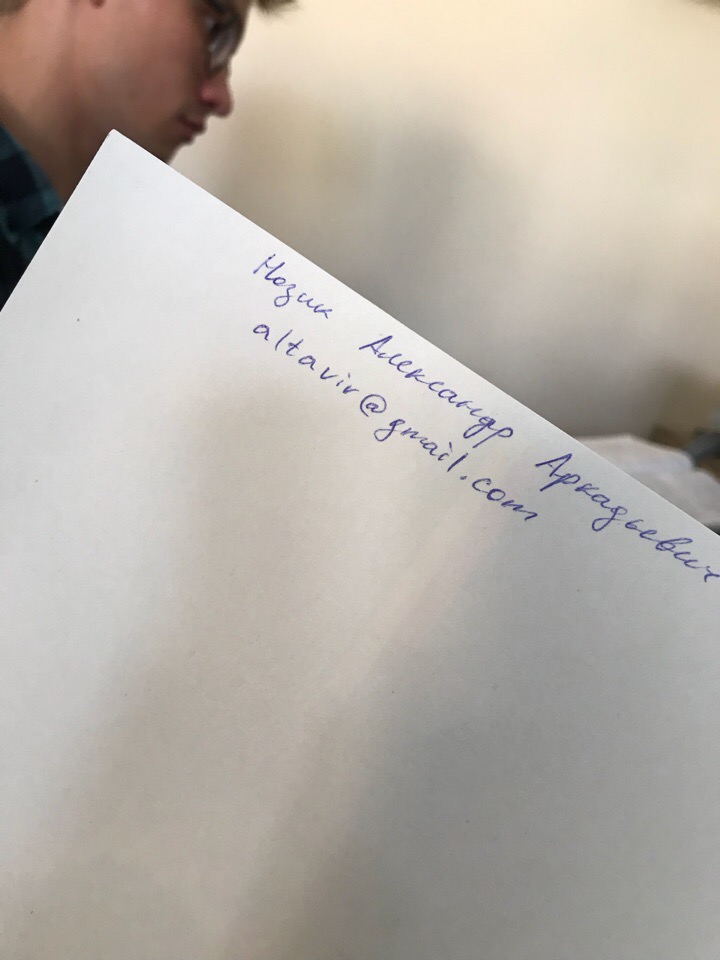 Нозик Александр Аркадьевич
altavir@gmail.com